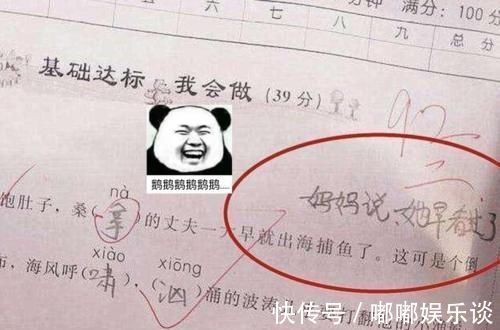 分钟 满分:100分
五 六 七 八 九 总分
基础达标 我会做(39分)
92
鹅鹅鹅鹅鹅鹅....
妈妈说,她早看过了
nà
饱肚子,桑( 拿 )的丈夫一大早就出海捕鱼了。这可是个倒
xiào xiōng
海风呼( 啸 ),( 汹 )涌的波涛
快传号/嘟嘟娱乐谈